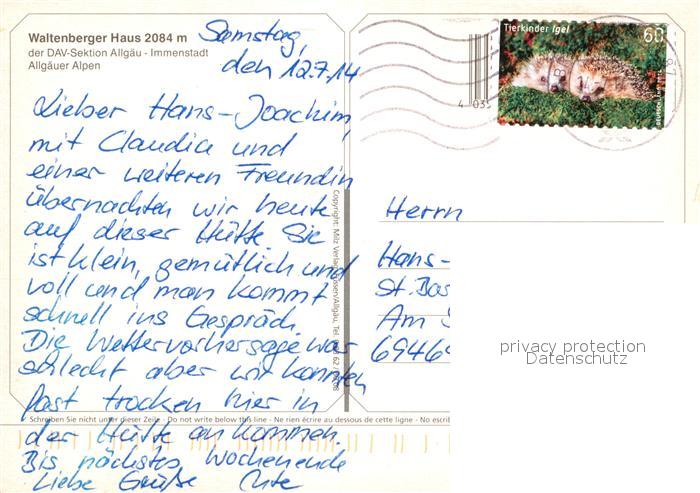 Waltenberger Haus 2084 m
der DAV-Sektion Allgäu - Immenstadt
Allgäuer Alpen
Samstag,
den 12.7.14
Lieber Hans-Joachim,
mit Claudia und
einer weiteren Freundin
übernachten wir heute
auf dieser Hütte. Sie
ist klein, gemütlich und
voll und man kommt
schnell ins Gespräch.
Die Wettervorhersage war
schlecht aber wir konnten
fast trocken hier in
der Hütte ankommen.
Bis nächstes Wochenende
Liebe Grüße Ute
Schreiben Sie nicht unter dieser Zeile - Do not write below this line - Ne rien écrire au dessous de cette ligne - No escrib
Copyright: Milz Verlag
Tierkinder Igel
60
DEUTSCHLAND
4 035
Herrn
Hans-
St. Bas
Am S
6946
privacy protection
Datenschutz